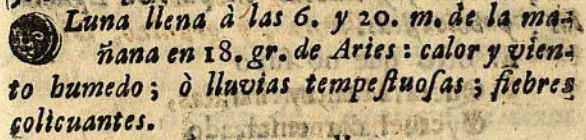 Luna llena à las 6. y 20. m. de la ma-
ñana en 18. gr. de Aries: calor y vien-
to humedo; ò lluvias tempeſtuoſas; fiebres
colicuantes.